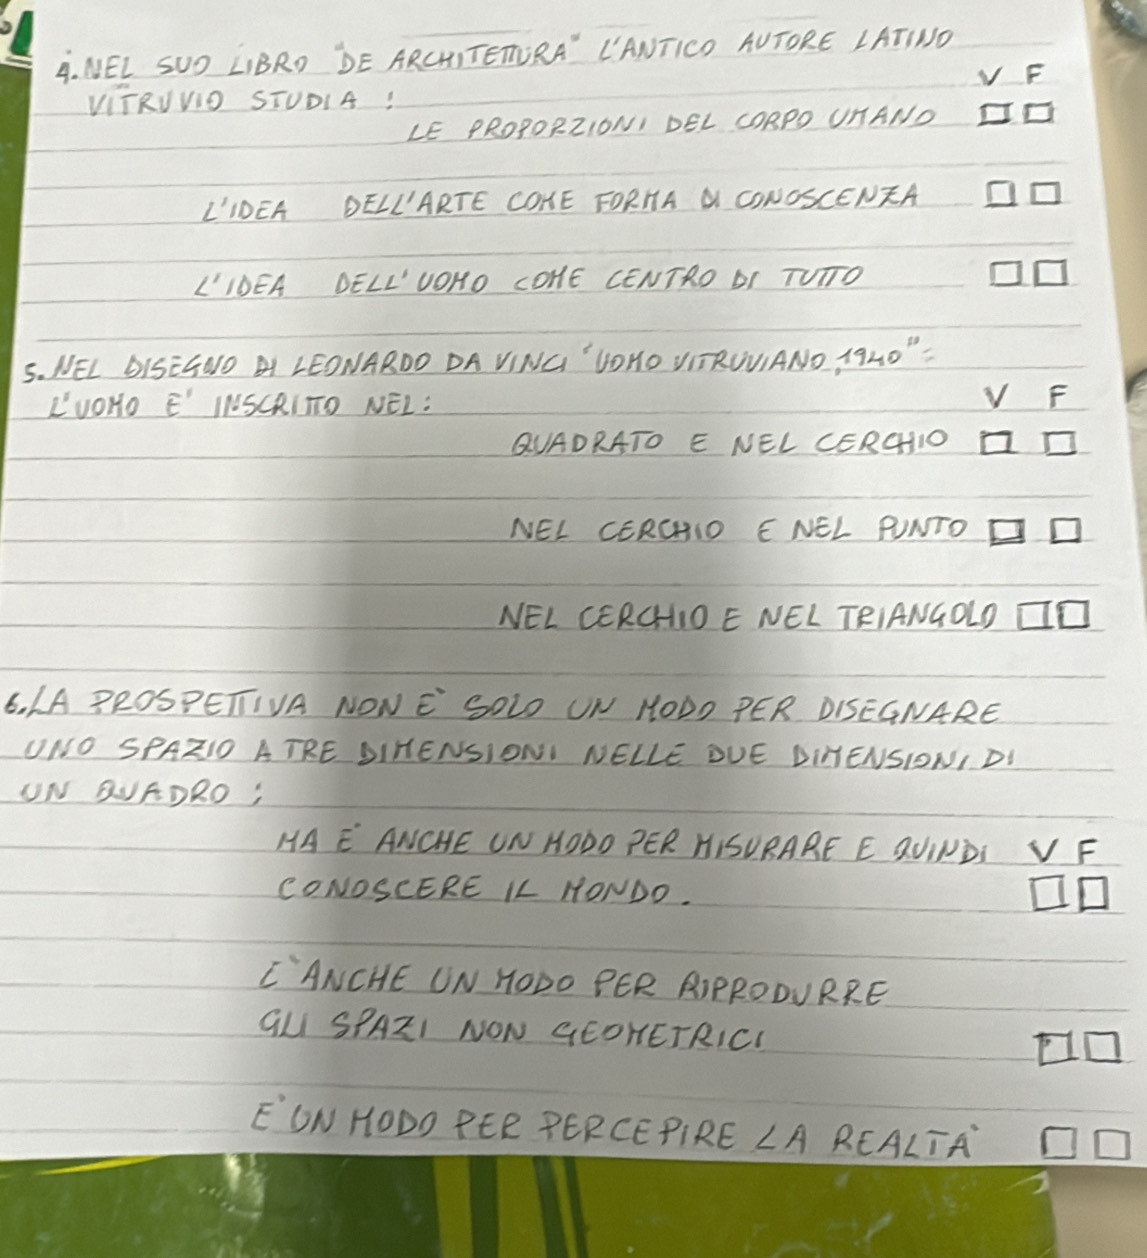 4. NEL SUO LIBRO "DE ARCHITETTURA" L'ANTICO AUTORE LATINO
VITRUVIO STUDIA :
V F
LE PROPORZIONI DEL CORPO UMANO
L'IDEA DELL'ARTE COME FORMA DI CONOSCENZA
L'IDEA DELL'UOMO COME CENTRO DI TUTTO
5. NEL DISEGNO DI LEONARDO DA VINCI "UOMO VITRUVIANO, 1940" =
L'UOMO E' INSCRITTO NEL :
V F
QUADRATO E NEL CERCHIO
NEL CERCHIO E NEL PUNTO
NEL CERCHIO E NEL TRIANGOLO
6. LA PROSPETTIVA NON E' SOLO UN MODO PER DISEGNARE
UNO SPAZIO A TRE DIMENSIONI NELLE DUE DIMENSIONI DI
UN QUADRO :
MA E' ANCHE UN MODO PER MISURARE E QUINDI V F
CONOSCERE IL MONDO.
E' ANCHE UN MODO PER RIPRODURRE
GLI SPAZI NON GEOMETRICI
E' UN MODO PER PERCEPIRE LA REALTA'